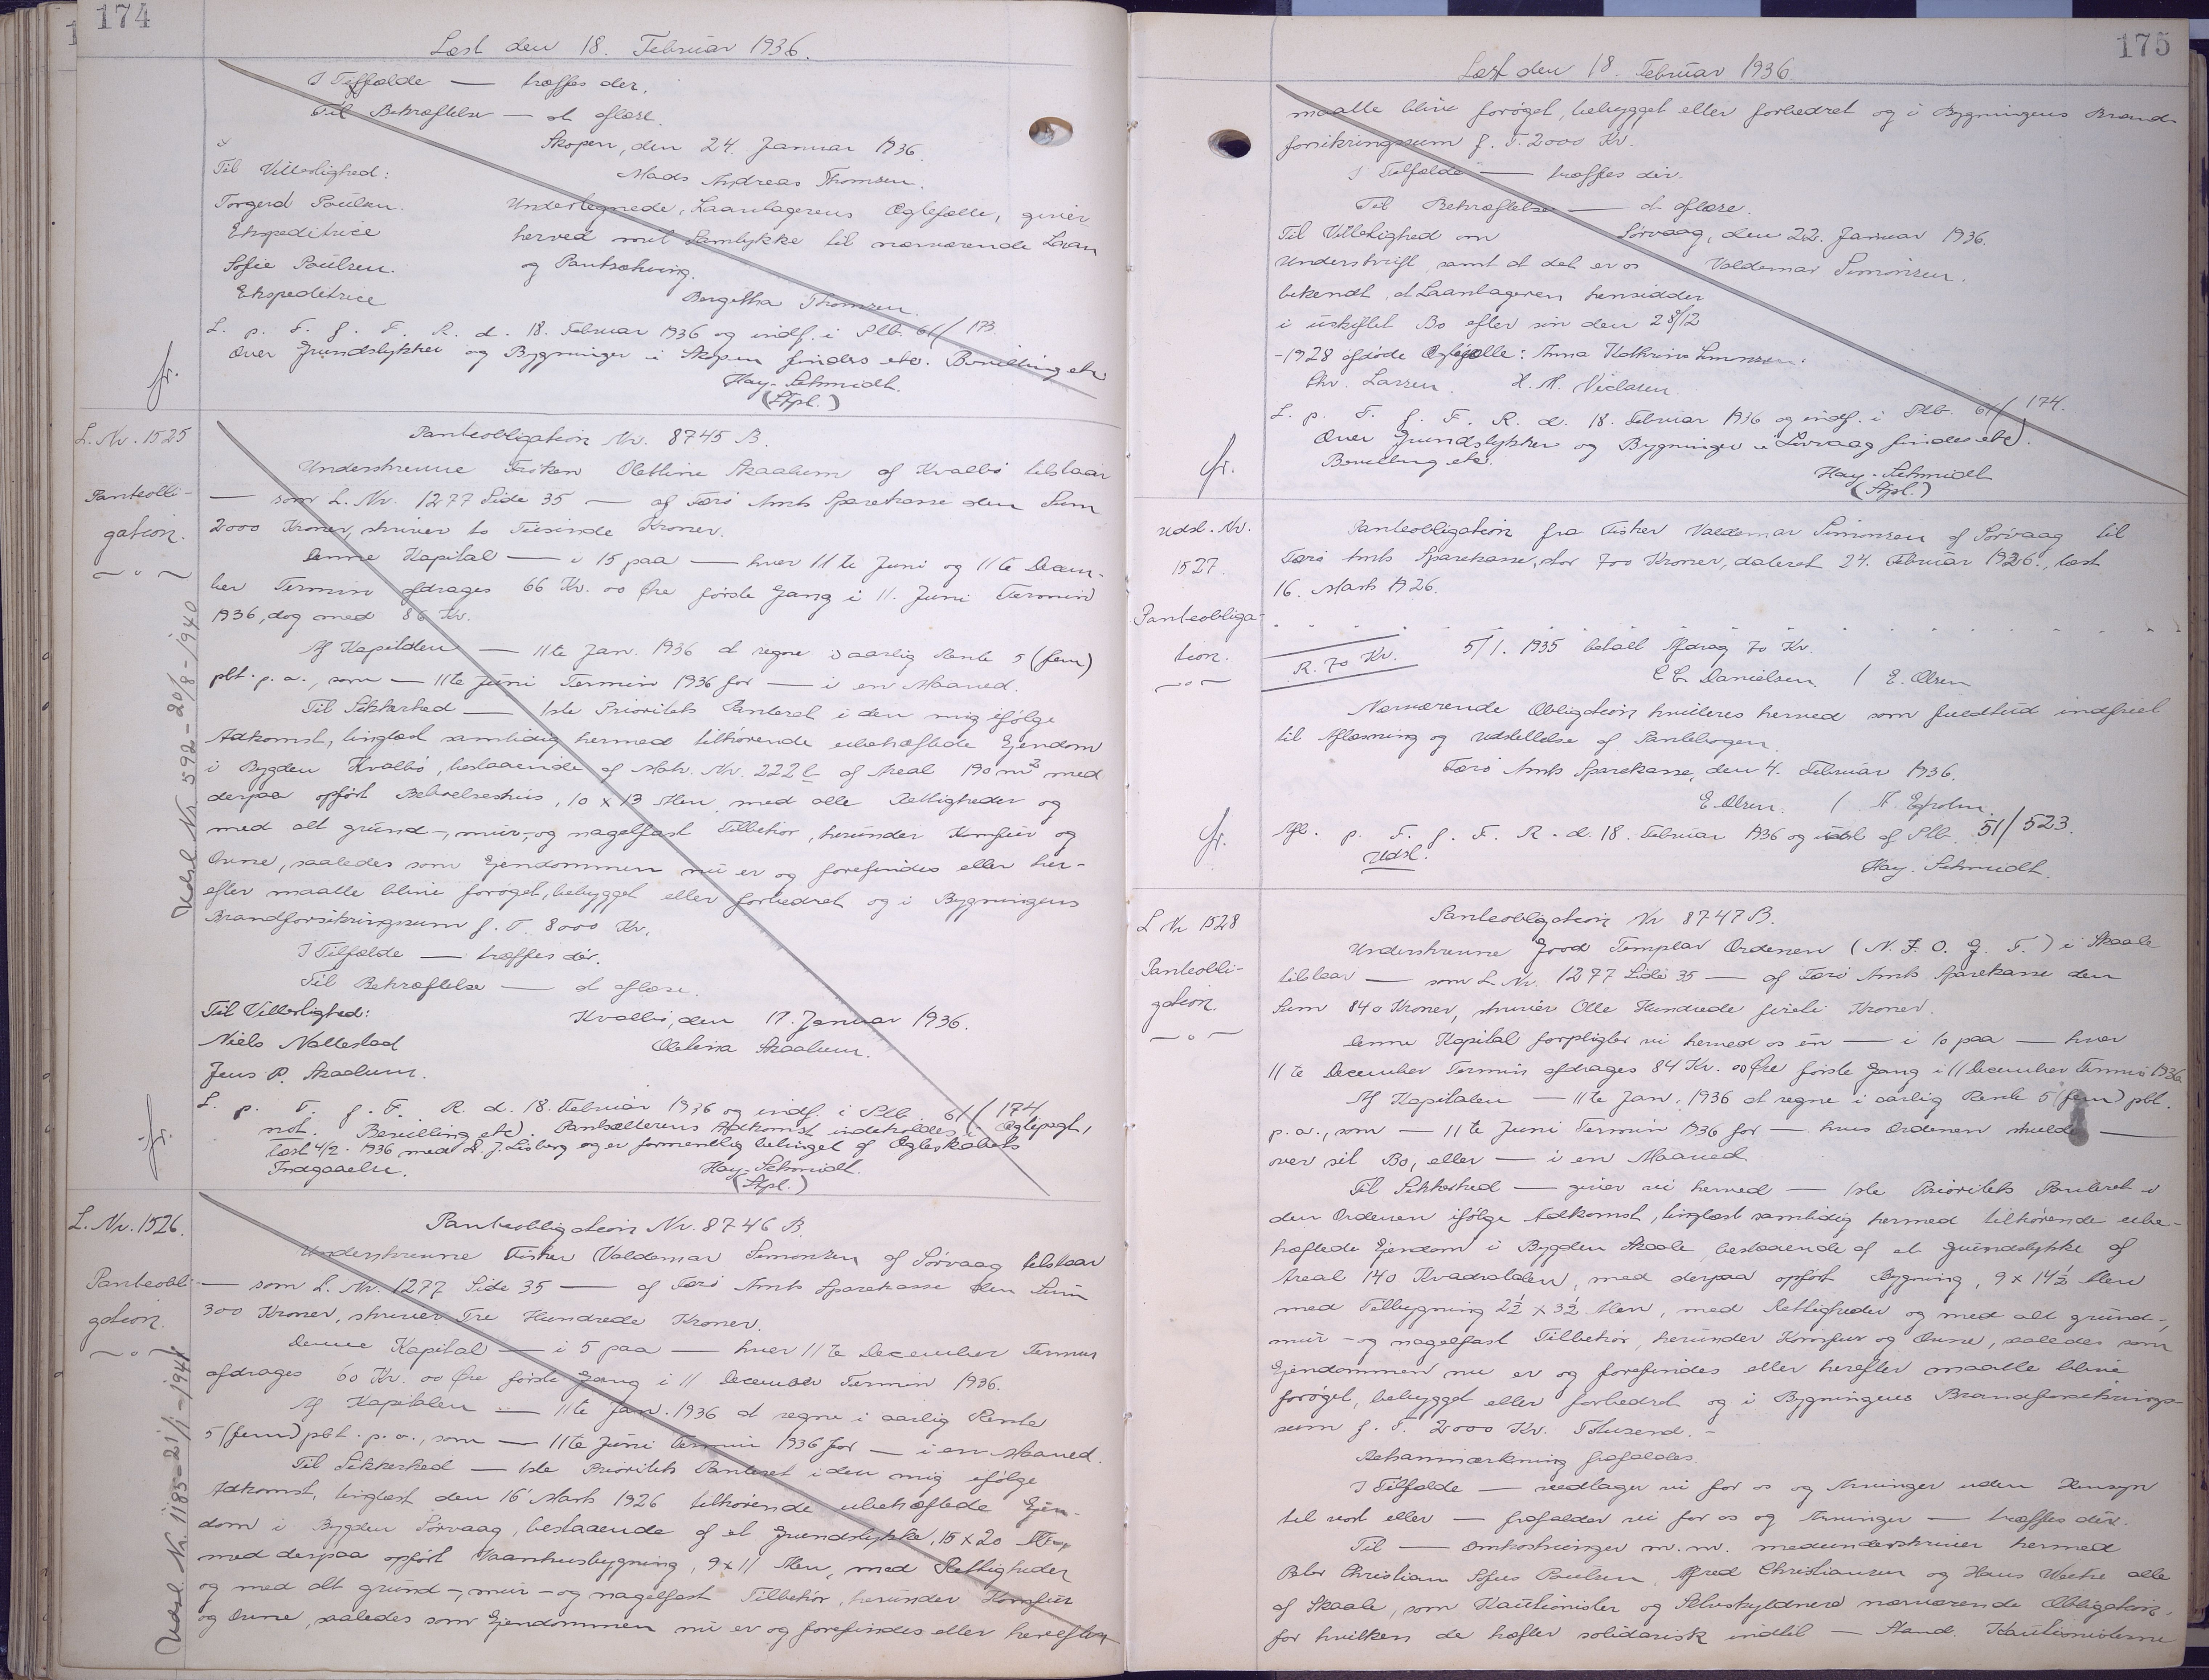 174
Læst den 18. Februar 1936.
I Tilfælde — træffes der.
Til Bekræftelse — at aflæse.
Skopen, den 24. Januar 1936.
Til Vitterlighed:
Mads Andreas Thomsen.
Torgerd Poulsen.
Undertegnede, Laantagerens Ægtefælle, giver
Ekspeditrice
herved mit Samtykke til nærværende Laan
Sofie Poulsen.
og Pantsætning.
Ekspeditrice
Bergitha Thomsen.
L. p. F. f. F. R. d. 18. Februar 1936 og indf. i Ptb. 61/173
Over Grundstykker og Bygninger i Skopen findes etc. Bevilling etc
Hay-Schmidt.
(Stpl.)
fr.
L. Nr. 1525
Panteobli-
gation.
Panteobligation Nr. 8745 B.
Underskrevne Frøken Olettine Skaalum af Kvalbø tilstaar
— som L. Nr. 1277 Side 35 — af Færø Amts Sparekasse den Sum
2000 Kroner, skriver to Tusinde Kroner.
Denne Kapital — i 15 paa — hver 11te Juni og 11te Decem-
ber Termin afdrages 66 Kr. 00 Øre første Gang i 11. Juni Termin
1936, dog med 86 Kr.
Af Kapitalen — 11te Jan. 1936 at regne i aarlig Rente 5 (fem)
pCt. p. a., som — 11te Juni Termin 1936 for — i en Maaned.
Til Sikkerhed — 1ste Prioritets Panteret i den mig ifølge
Adkomst, tinglæst samtidig hermed tilhørende ubehæftede Ejendom
i Bygden Kvalbø, bestaaende af Matr. Nr. 222 l af Areal 190 m² med
derpaa opført Beboelseshus, 10 x 13 Alen med alle Rettigheder og
med alt grund-, mur-, og nagelfast Tilbehør, herunder Komfur og
Ovne, saaledes som Ejendommen nu er og forefindes eller her-
efter maatte blive forøget, bebygget eller forbedret og i Bygningens
Brandforsikringssum f. T. 8000 Kr.
I Tilfælde — træffes dér.
Til Bekræftelse — at aflæse.
Til Vitterlighed:
Kvalbø, den 17. Januar 1936.
Niels Nattestad
Oletina Skaalum.
Jens P. Skaalum.
L. p. F. f. F. R. d. 18. Februar 1936 og indf. i Ptb. 61/174
not. Bevilling etc. Pantsætterens Adkomst indeholdes i Ægtepagt,
læst 4/2. 1936 med D. J. Lisberg og er formentlig betinget af Ægteskabets
Indgaaelse.
Hay-Schmidt.
(Stpl.)
fr.
Udsl. Nr. 592 - 20/8 - 1940
L. Nr. 1526.
Panteobli-
gation.
Panteobligation Nr. 8746 B.
Underskrevne Fisker Valdemar Simonsen af Sørvaag tilstaar
— som L. Nr. 1277 Side 35 — af Færø Amts Sparekasse den Sum
300 Kroner, skriver Tre Hundrede Kroner.
Denne Kapital — i 5 paa — hver 11te December Termin
afdrages 60 Kr. 00 Øre første Gang i 11 December Termin 1936.
Af Kapitalen — 11te Jan. 1936 at regne i aarlig Rente
5 (fem) pCt. p. a., som — 11te Juni Termin 1936 for — i en Maaned.
Til Sikkerhed — 1ste Prioritets Panteret i den mig ifølge
Adkomst, tinglæst den 16' Marts 1926 tilhørende ubehæftede Ejen-
dom i Bygden Sørvaag, bestaaende af et Grundstykke, 15 x 20 Alen
med derpaa opført Vaaningshusbygning, 9 x 11 Alen, med Rettigheder
og med alt grund-, mur- og nagelfast Tilbehør, herunder Komfur
og Ovne, saaledes som Ejendommen nu er og forefindes eller herefter
Udsl. Nr. 1185 - 21/1 - 1941
175
Læst den 18. Februar 1936.
maatte blive forøget, bebygget eller forbedret og i Bygningens Brand-
forsikringssum f. T. 2000 Kr.
I Tilfælde — træffes dér.
Til Bekræftelse — at aflæse.
Til Vitterlighed om
Sørvaag, den 22. Januar 1936.
Underskrift samt at det er os
Valdemar Simonsen.
bekendt, at Laantageren hensidder
i uskiftet Bo efter sin den 28/12
-1928 afdøde Ægtefælle: Anna Kathrine Simonsen.
Chr. Larsen. H. M. Niclasen.
L. p. F. f. F. R. d. 18. Februar 1936 og indf. i Ptb. 61/174.
Over Grundstykker og Bygninger i Sørvaag findes etc.
Bevilling etc.
Hay-Schmidt
(Stpl.)
fr.
Udsl. Nr.
1527.
Panteobliga-
tion.
Panteobligation fra Fisker Valdemar Simonsen af Sørvaag til
Færø Amts Sparekasse, stor 700 Kroner, dateret 24. Februar 1926., læst
16. Marts 1926.
R. 70 Kr. 5/1. 1935 betalt Afdrag 70 Kr.
C C Danielsen / E. Olsen
Nærværende Obligation kvitteres herved som fuldtud indfriet
til Aflæsning og Udslettelse af Pantebogen.
Færø Amts Sparekasse, den 4. Februar 1936.
E. Olsen. / A. Egholm.
Afl. p. F. f. F. R. d. 18. Februar 1936 og udsl af Ptb. 51/523.
Udsl.
Hay-Schmidt.
fr.
L Nr 1528
Panteobli-
gation.
Panteobligation Nr 8747 B.
Underskrevne Good Templar Ordenen (N. I. O. G. T.) i Skaale
tilstaar — som L. Nr. 1277 Side 35 — af Færø Amts Sparekasse den
Sum 840 Kroner, skriver Otte Hundrede fireti Kroner.
Denne Kapital forpligter vi herved os én — i 10 paa — hver
11te December Termin afdrages 84 Kr. 00 Øre første Gang i 11 December Termin 1936
Af Kapitalen — 11te Jan. 1936 at regne i aarlig Rente 5 (fem) pCt.
p. a., som — 11te Juni Termin 1936 for — hvis Ordenen skulde —
over sit Bo, eller — i en Maaned.
Til Sikkerhed — giver vi herved — 1ste Prioritets Panteret i
den Ordenen ifølge Adkomst, tinglæst samtidig hermed tilhørende ube-
hæftede Ejendom i Bygden Skaale bestaaende af et Grundstykke af
Areal 140 Kvadratalen, med derpaa opført Bygning, 9 x 14½ Alen
med Tilbygning 2½ x 3½ Alen, med Rettigheder og med alt grund-,
mur- og nagelfast Tilbehør, herunder Komfur og Ovne, saaledes som
Ejendommen nu er og forefindes eller herefter maatte blive
forøget, bebygget eller forbedret og i Bygningens Brandforsikrings-
sum f. T. 2000 Kr. Totusend. -
Retsanmærkning frafaldes.
I Tilfælde — vedtager vi for os og Arvinger uden Hensyn
til vort eller — frafalder vi for os og Arvinger — træffes dér.
Til — Omkostninger m. m. medunderskriver hermed
Peter Christian Sofus Poulsen, Alfred Christiansen og Hans Weihe alle
af Skaale, som Kautionister og Selvskyldnere nærværende Obligation,
for hvilken de hæfter solidarisk indtil — Stand. Kautionisterne